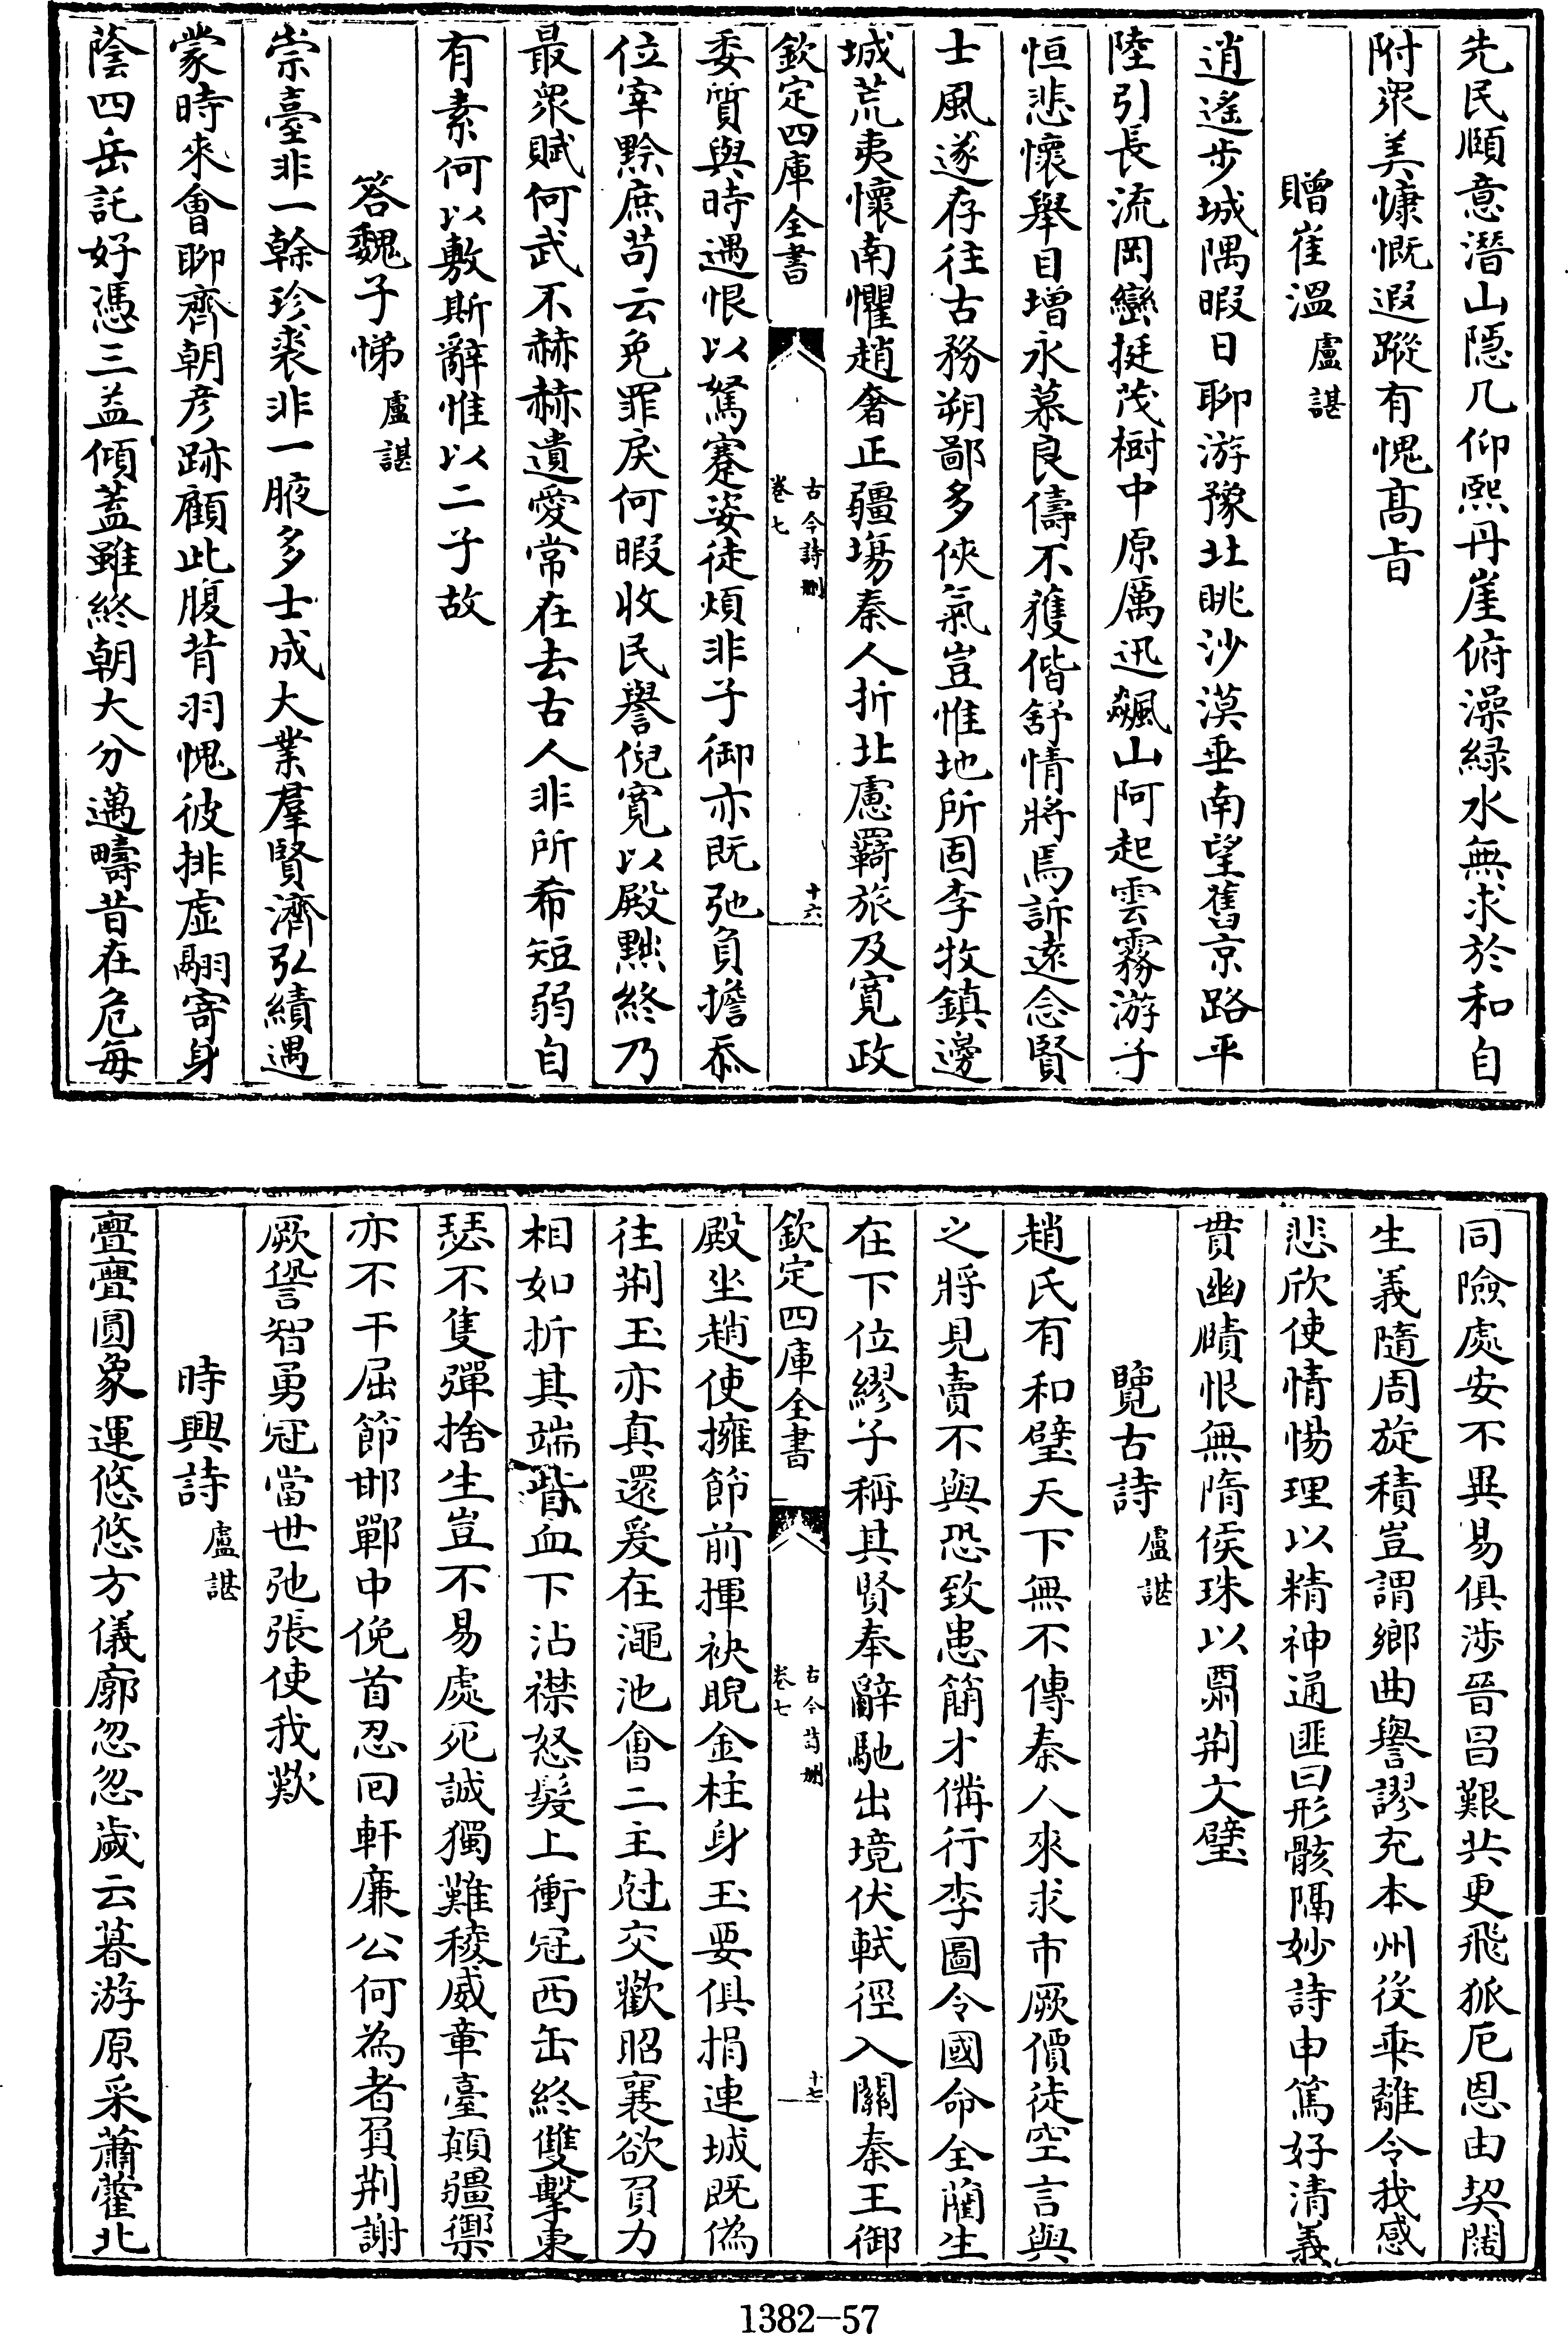 先民頤意潛山隠几仰熙丹崖俯澡緑水無求於和自
附衆美慷慨遐蹤有愧髙㫖
贈崔溫盧諶
逍遙步城隅暇日聊游豫北眺沙漠垂南望舊京路平
陸引長流岡巒挺茂樹中原厲迅飇山阿起雲霧游子
恒悲懷舉目增永慕良儔不獲偕舒情將焉訴遠念賢
士風遂存往古務朔鄙多俠氣豈惟地所固李牧鎮邊
城荒夷懷南懼趙奢正疆塲秦人折北慮羇旅及寛政
欽定四庫全書
古今詩刪
卷七
十六
委質與時遇恨以駑蹇姿徒煩非子御亦既弛負擔忝
位宰黔庶苟云免罪戾何暇收民譽倪寛以殿黜終乃
最衆賦何武不赫赫遺愛常在去古人非所希短弱自
有素何以敷斯辭惟以二子故
答魏子悌盧諶
崇臺非一榦珍裘非一腋多士成大業羣賢濟弘績遇
蒙時來會聊齊朝彦跡顧此腹背羽愧彼排虛翮寄身
蔭四岳託好憑三益傾蓋雖終朝大分邁疇昔在危每
同險處安不異易俱涉晉昌艱共更飛狐厄恩由契闊
生義隨周旋積豈謂鄉曲譽謬充本州役乖離令我感
悲欣使情惕理以精神通匪曰形骸隔妙詩申篤好清義
貫幽賾恨無隋侯珠以酬荆文璧
覽古詩盧諶
趙氏有和璧天下無不傳秦人來求市厥價徒空言與
之將見賣不與恐致患簡才備行李圖令國命全藺生
在下位繆子稱其賢奉辭馳出境伏軾徑入關秦王御
欽定四庫全書
古今詩刪
卷七
十七
殿坐趙使擁節前揮袂睨金柱身玉要俱捐連城既偽
往荆玉亦真還爰在澠池會二主尅交歡昭襄欲負力
相如折其端眥血下沾襟怒髮上衝冠西缶終雙擊東
瑟不隻彈捨生豈不易處死誠獨難稜威章臺顛疆禦
亦不干屈節邯鄲中俛首忍回軒廉公何為者負荆謝
厥諐智勇冠當世弛張使我歎
時興詩盧諶
亹亹圓象運悠悠方儀廓忽忽歲云暮游原采蕭藿北
1382-57